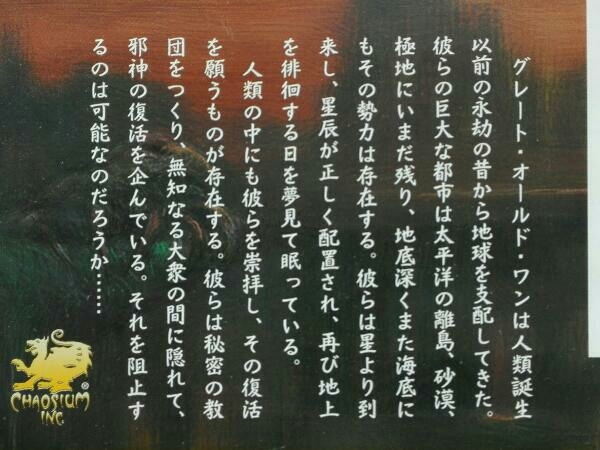 グレート・オールド・ワンは人類誕生
以前の永劫の昔から地球を支配してきた。
彼らの巨大な都市は太平洋の離島、砂漠、
極地にいまだ残り、地底深くまた海底に
もその勢力は存在する。彼らは星より到
来し、星辰が正しく配置され、再び地上
を徘徊する日を夢見て眠っている。
人類の中にも彼らを崇拝し、その復活
を願うものが存在する。彼らは秘密の教
団をつくり、無知なる大衆の間に隠れて、
邪神の復活を企んでいる。それを阻止す
るのは可能なのだろうか……
CHAOSIUM
INC
®